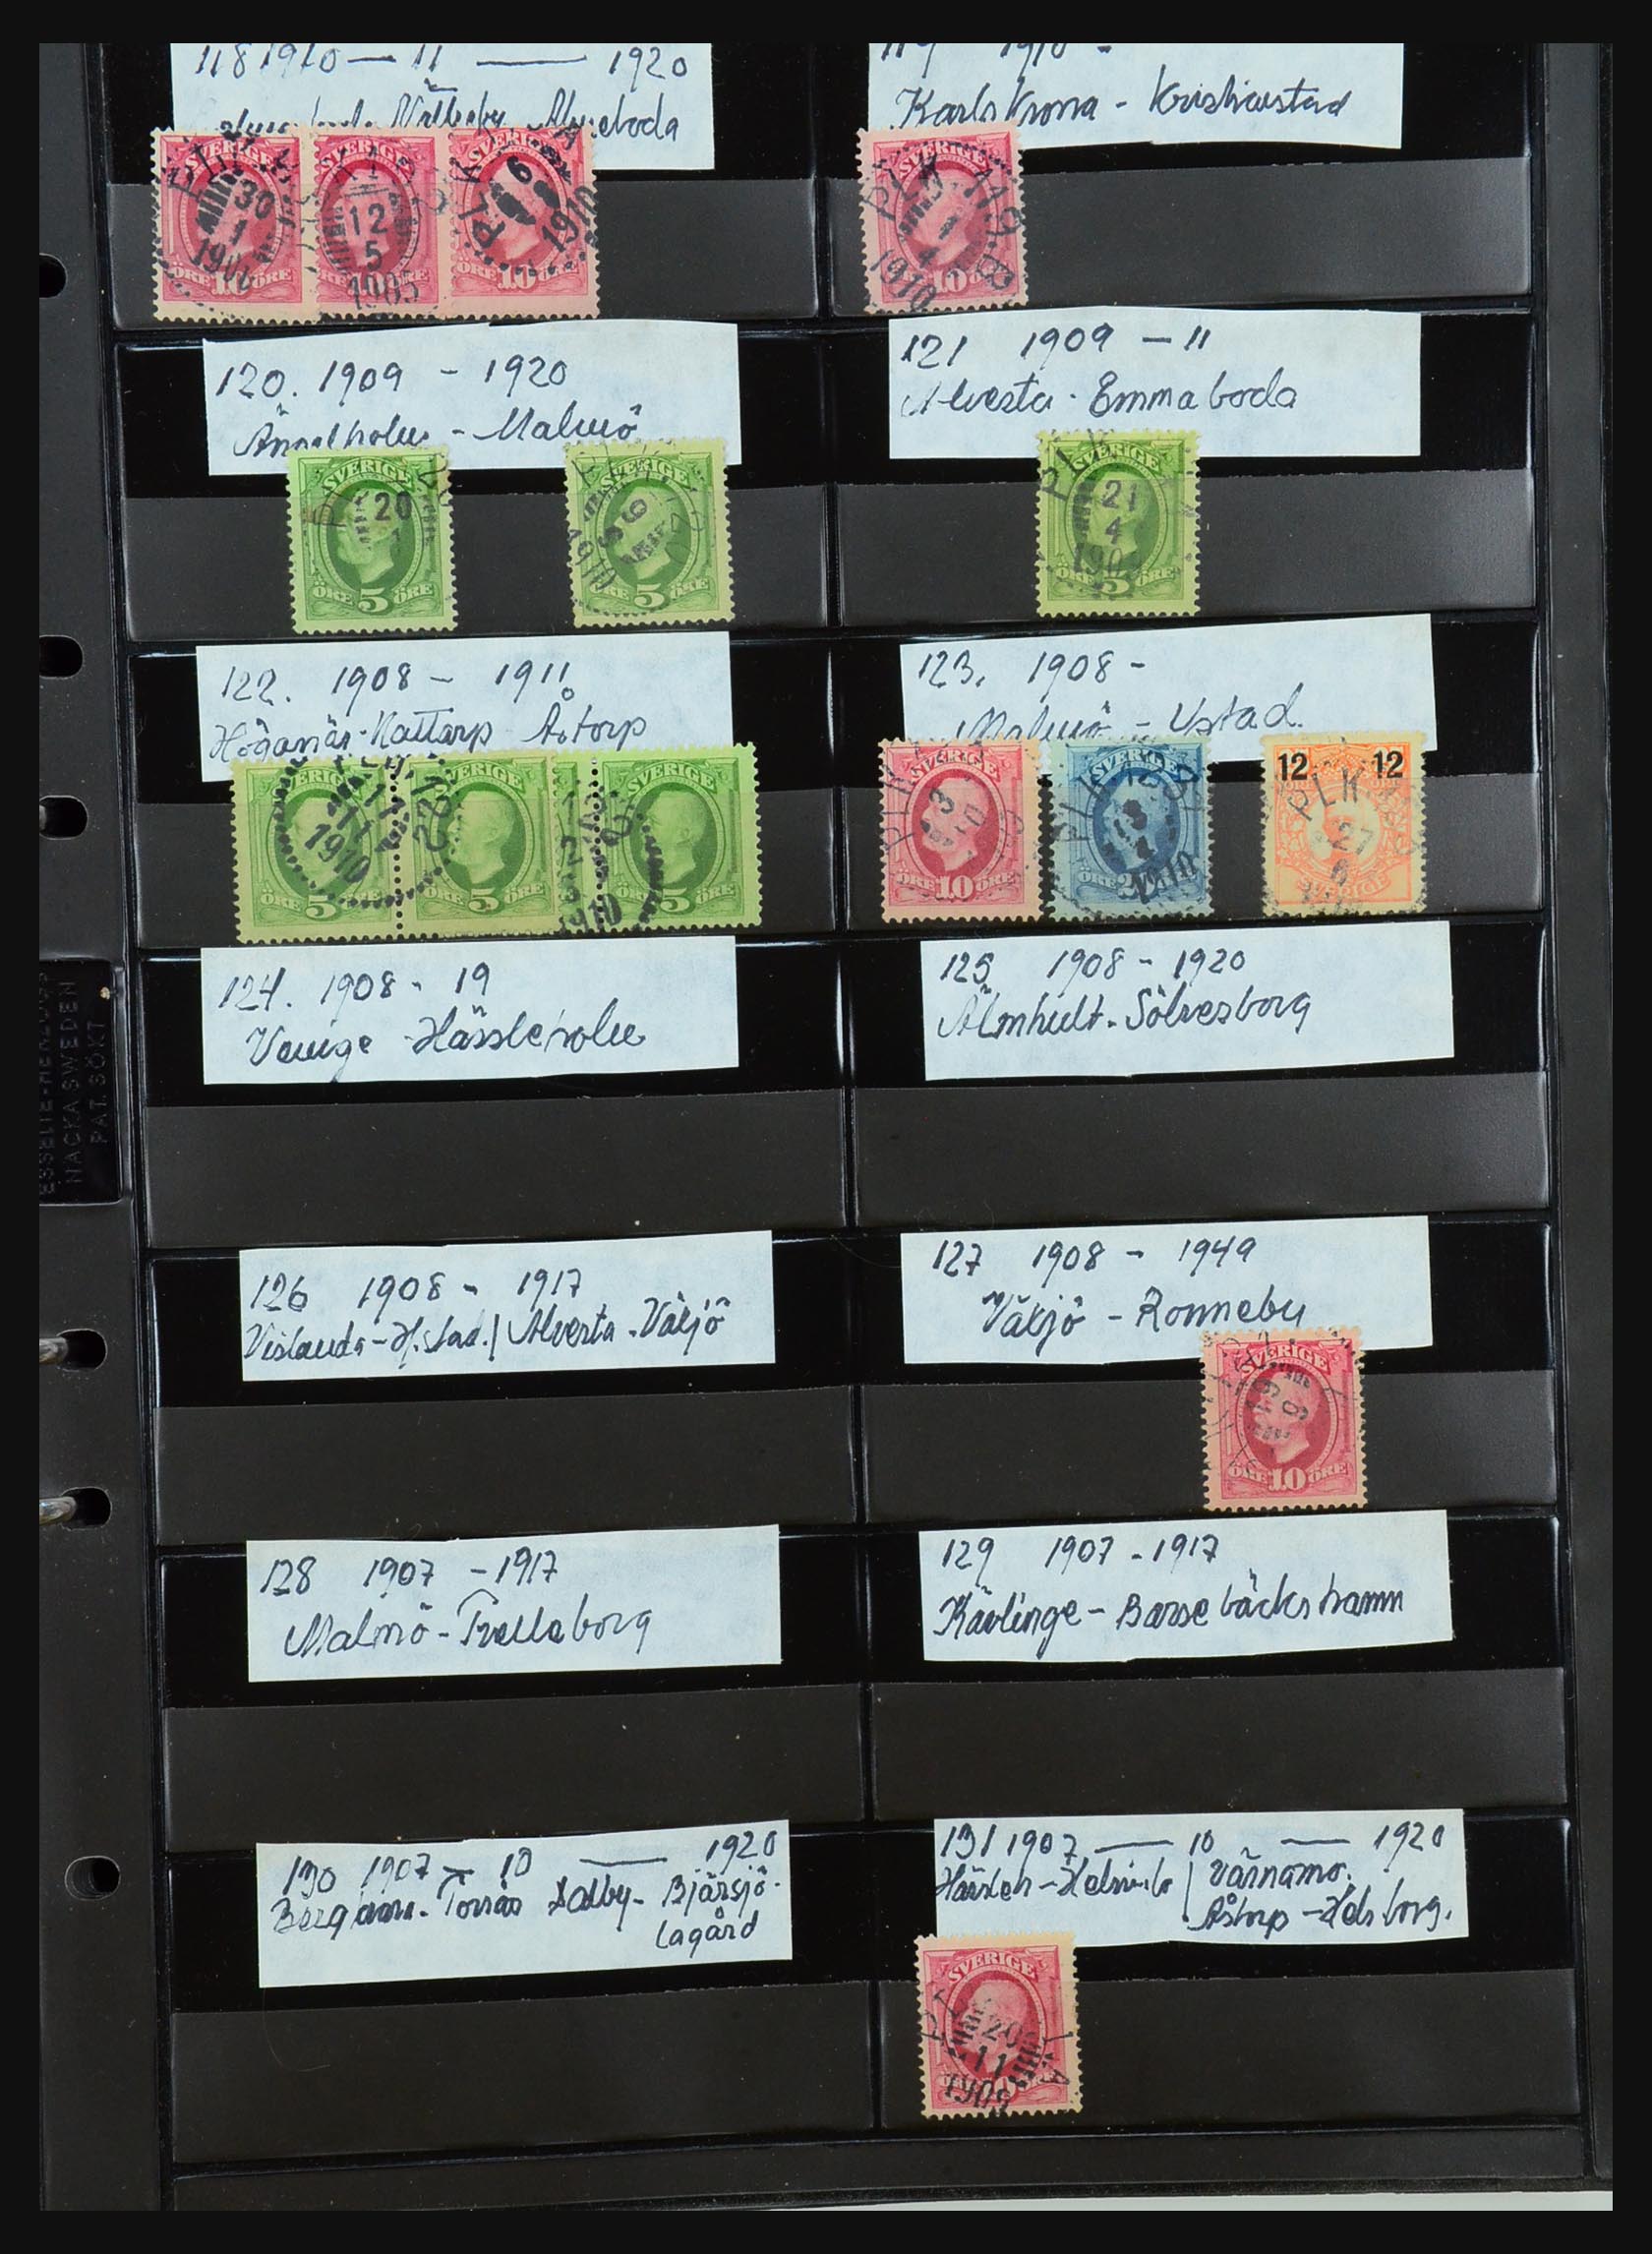 118 1910 — 11 — 1920
119 1910 -
Karlskrona - Kristianstad
SVERIGE
30
1
12
5
1905
PLK
6
1910
ÖRE 10 ÖRE
PLK 119 B
1910
120. 1909 - 1920
Ängelholm - Malmö
121 1909 - 11
Alvesta - Emmaboda
SVERIGE
20
ÖRE 5 ÖRE
SVERIGE
1910
ÖRE 5 ÖRE
SVERIGE
PLK
21
4
ÖRE 5 ÖRE
122. 1908 - 1911
Höganäs - Kattarp Åstorp
123. 1908 -
Malmö - Ystad.
SVERIGE
1910
ÖRE 5 ÖRE
SVERIGE
PLK
ÖRE 10 ÖRE
PLK
12 12
PLK
27
6
SVERIGE
124. 1908 - 19
Veinge - Hässleholm
125 1908 - 1920
Älmhult - Sölvesborg
ESSELTE-HERZOGS
NACKA SWEDEN
PAT. SÖKT
126 1908 - 1917
Vislanda - H.stad. / Alvesta - Växjö
127 1908 - 1949
Växjö - Ronneby
SVERIGE
ÖRE 10 ÖRE
128 1907 - 1917
Malmö - Trelleborg
129 1907 - 1917
Kävlinge - Barsebäckshamn
130 1907 — 10 — 1920
Bergkvara - Torsås Dalby - Bjärsjö-
lagård
131 1907 — 10 — 1920
Värnamo.
Åstorp - Helsborg.
SVERIGE
20
11
1908